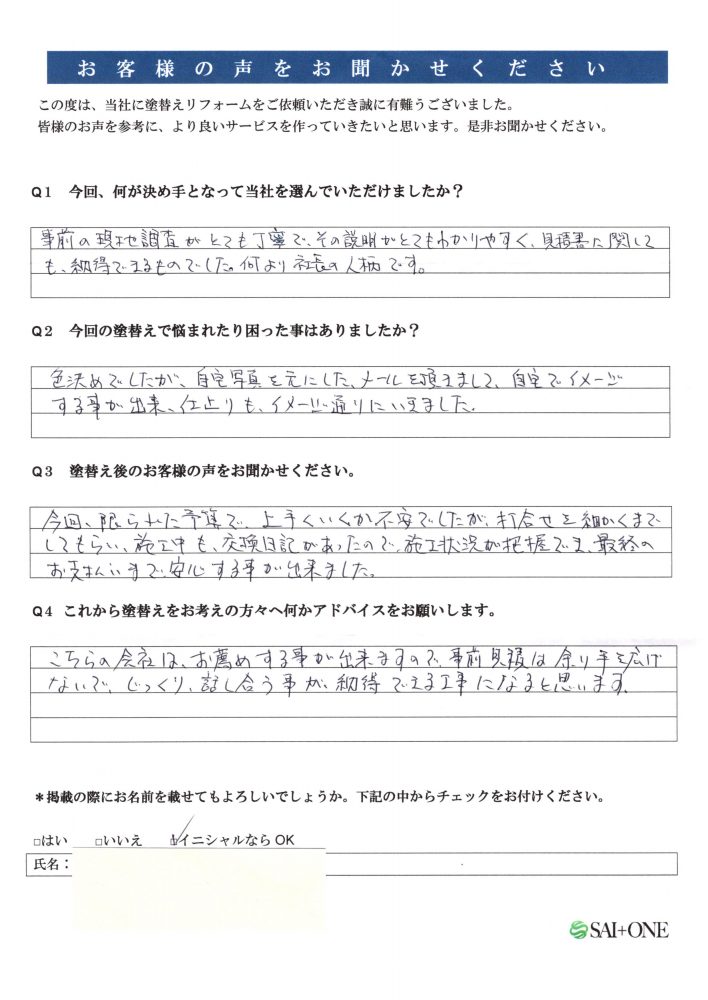 お客様の声をお聞かせください
この度は、当社に塗替えリフォームをご依頼いただき誠に有難うございました。
皆様のお声を参考に、より良いサービスを作っていきたいと思います。是非お聞かせください。
Q1 今回、何が決め手となって当社を選んでいただけましたか？
事前の現地調査がとても丁寧で、その説明がとてもわかりやすく、見積書に関して
も、納得できるものでした。何より社長の人柄です。
Q2 今回の塗替えで悩まれたり困った事はありましたか？
色決めでしたが、自宅写真を元にした、メールを頂きまして、自宅でイメージ
する事が出来、仕上りも、イメージ通りにいきました。
Q3 塗替え後のお客様の声をお聞かせください。
今回、限られた予算で、上手くいくか不安でしたが、打合せを細かくまで
してもらい、施工中も、交換日記があったので、施工状況が把握でき、最終の
お支払いまで、安心する事が出来ました。
Q4 これから塗替えをお考えの方々へ何かアドバイスをお願いします。
こちらの会社は、お薦めする事が出来ますので、事前見積は余り手を広げ
ないで、じっくり、話し合う事が、納得できる工事になると思います。
＊掲載の際にお名前を載せてもよろしいでしょうか。下記の中からチェックをお付けください。
□はい □いいえ ☑イニシャルなら OK
氏名：
SAI+ONE